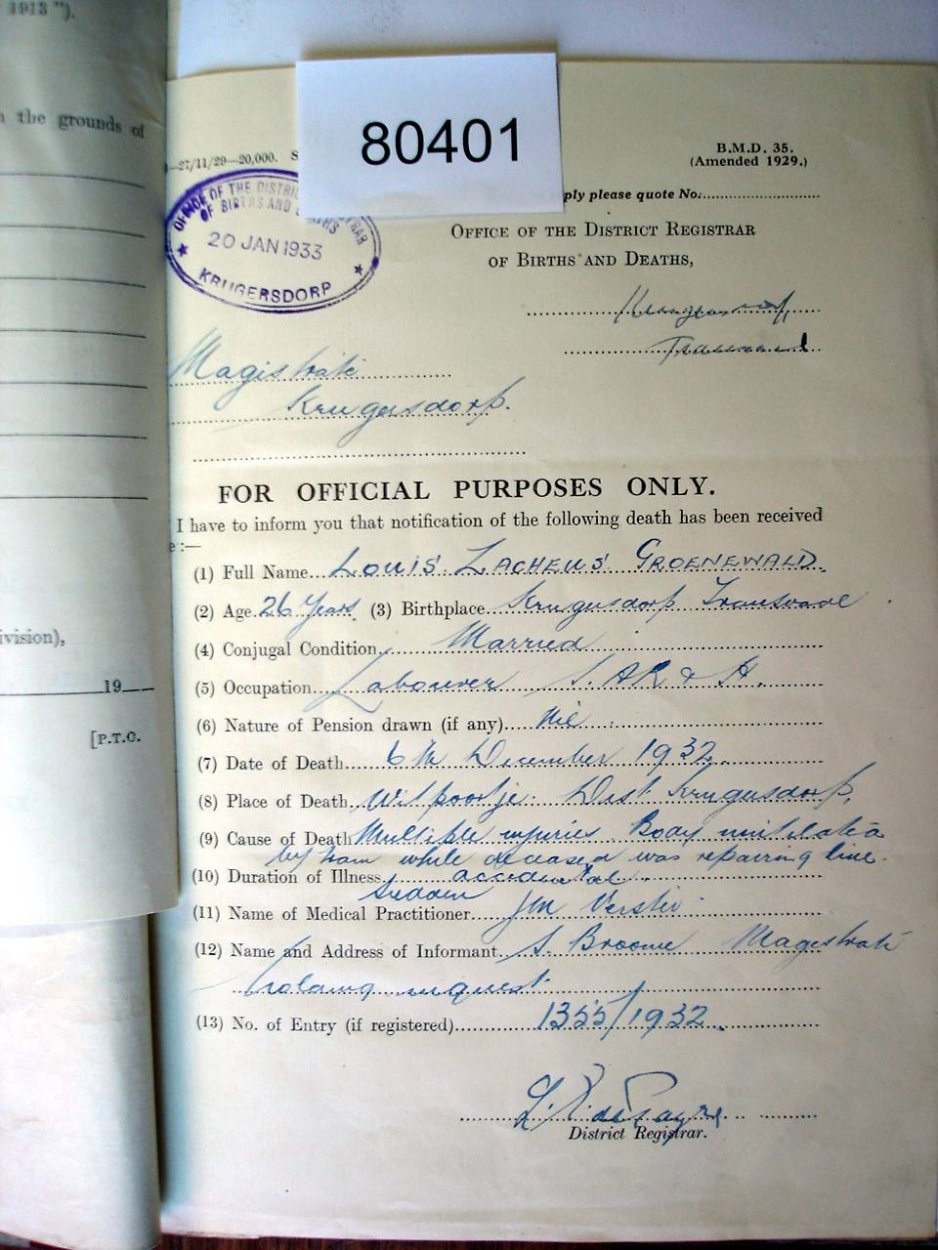 1913 ").
n the grounds of
ivision),
19
[P.T.O.
80401
—27/11/29—20,000. S
B.M.D. 35.
(Amended 1929.)
ply please quote No:
OFFICE OF THE DISTRICT REGISTRAR
OF BIRTHS AND DEATHS,
OFFICE OF THE DISTRI RAR
OF BIRTHS AND DEATHS
20 JAN 1933
KRUGERSDORP
Krugersdorp
Transvaal
Magistrate
Krugersdorp.
FOR OFFICIAL PURPOSES ONLY.
I have to inform you that notification of the following death has been received
e:—
(1) Full Name Louis Zacheus Groenewald.
(2) Age 26 Years (3) Birthplace Krugersdorp Transvaal
(4) Conjugal Condition Married
(5) Occupation Labourer S.A.R & H.
(6) Nature of Pension drawn (if any) Nil.
(7) Date of Death 6th December 1932.
(8) Place of Death Witpoortje. Dist Krugersdorp.
(9) Cause of Death Multiple injuries. Body mutilated
by train while deceased was repairing line.
(10) Duration of Illness accidental.
Sudden
(11) Name of Medical Practitioner
(12) Name and Address of Informant S. Broome Magistrate
holding inquest.
(13) No. of Entry (if registered) 1355/1932.
District Registrar.